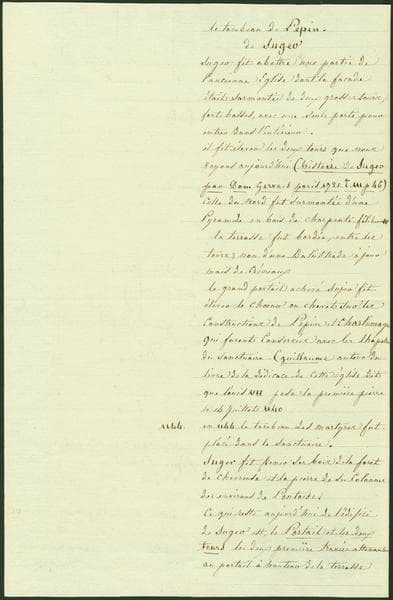 le tombeau de Pepin.
de Suger
Suger fit abattre une partie de
l'ancienne Eglise dont la façade
était surmontée de deux grosses tours,
fort basses, avec une seule porte pour
entrer dans l'intérieur.
il fit élever les deux tours que nous
voyons aujourd'hui (histoire de Suger
par Dom Gervais paris 1721. T. III p. 46)
Celle du Nord fut surmontée d'une
Pyramide en bois de charpente
la terrasse fut bordée, entre les
tours, non d'une Balustrade à jour
mais de Créneaux
le grand portail achevé Sujer fit
élever le Choeur ou chevet sur les
Constructions de Pepin et Charlemagne
qui furent Conservées avec les Chapelles
du sanctuaire (guillaume auteur du
livre de la dédicace de cette église dit
que louis VII posa la première pierre
le 14 Juillet 1140
1144. en 1144 le tombeau des martyrs fut
placé dans le sanctuaire.
Suger fit venir les bois de la forêt
de chevreuse et la pierre de ses Colonnes
des environs de Pontoise.
Ce qui reste aujourd'hui de l'édifice
de Suger est, le Portail et les deux
tours les deux première travées attenantes
au portail à hauteur de la terrasse